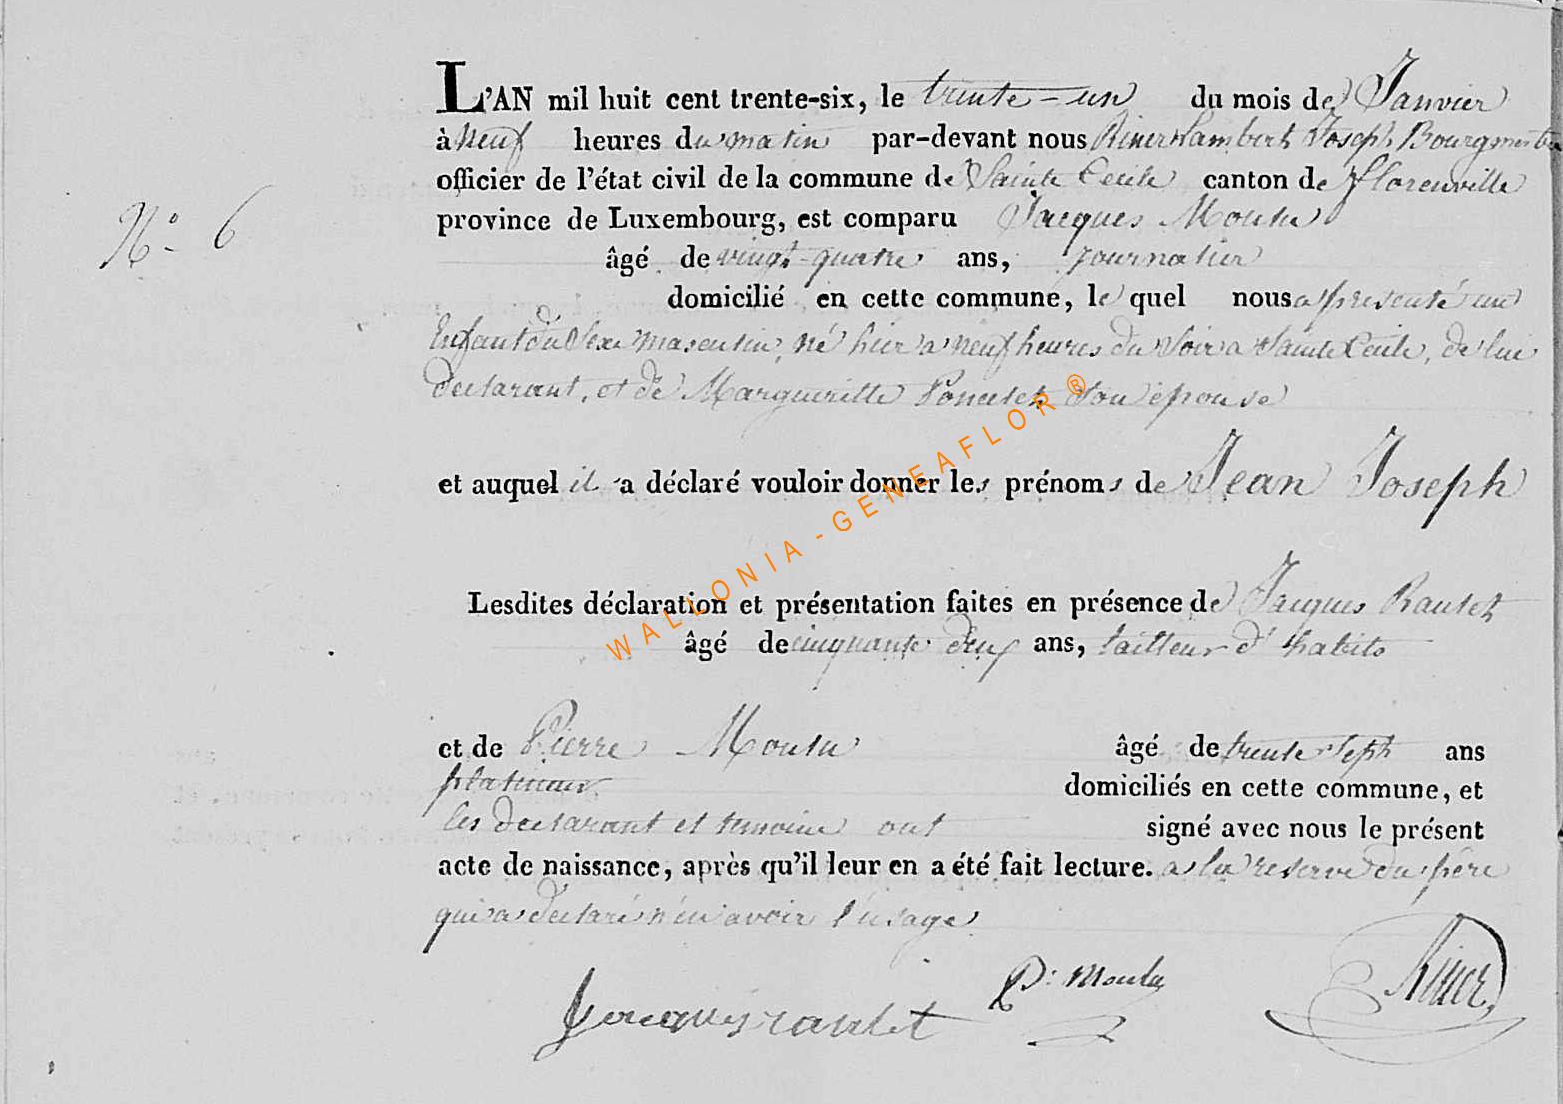 L'AN mil huit cent trente-six, le trente-un du mois de Janvier
à neuf heures du matin par-devant nous Riner Lambert Joseph Bourgmestre
officier de l'état civil de la commune de Sainte Cécile canton de Florenville
N° 6
province de Luxembourg, est comparu Jacques Moulu
âgé de vingt-quatre ans, journalier
domicilié en cette commune, le quel nous a présenté un
Enfant du Sexe masculin, né hier a neuf heures du Soir a Sainte Cécile, de lui
declarant, et de Margueritte Poncelet Son épouse
et auquel il a déclaré vouloir donner les prénoms de Jean Joseph
Lesdites déclaration et présentation faites en présence de Jacques Raulet
âgé de cinquante deux ans, tailleur d'habits
et de Pierre Moulu âgé de trente Sept ans
platineur domiciliés en cette commune, et
les declarant et temoins ont signé avec nous le présent
acte de naissance, après qu'il leur en a été fait lecture. a la reserve du père
qui a declaré n'en avoir l'usage
Jacques raulet P: Moulu Riner
WALLONIA-GENEAFLOR ®